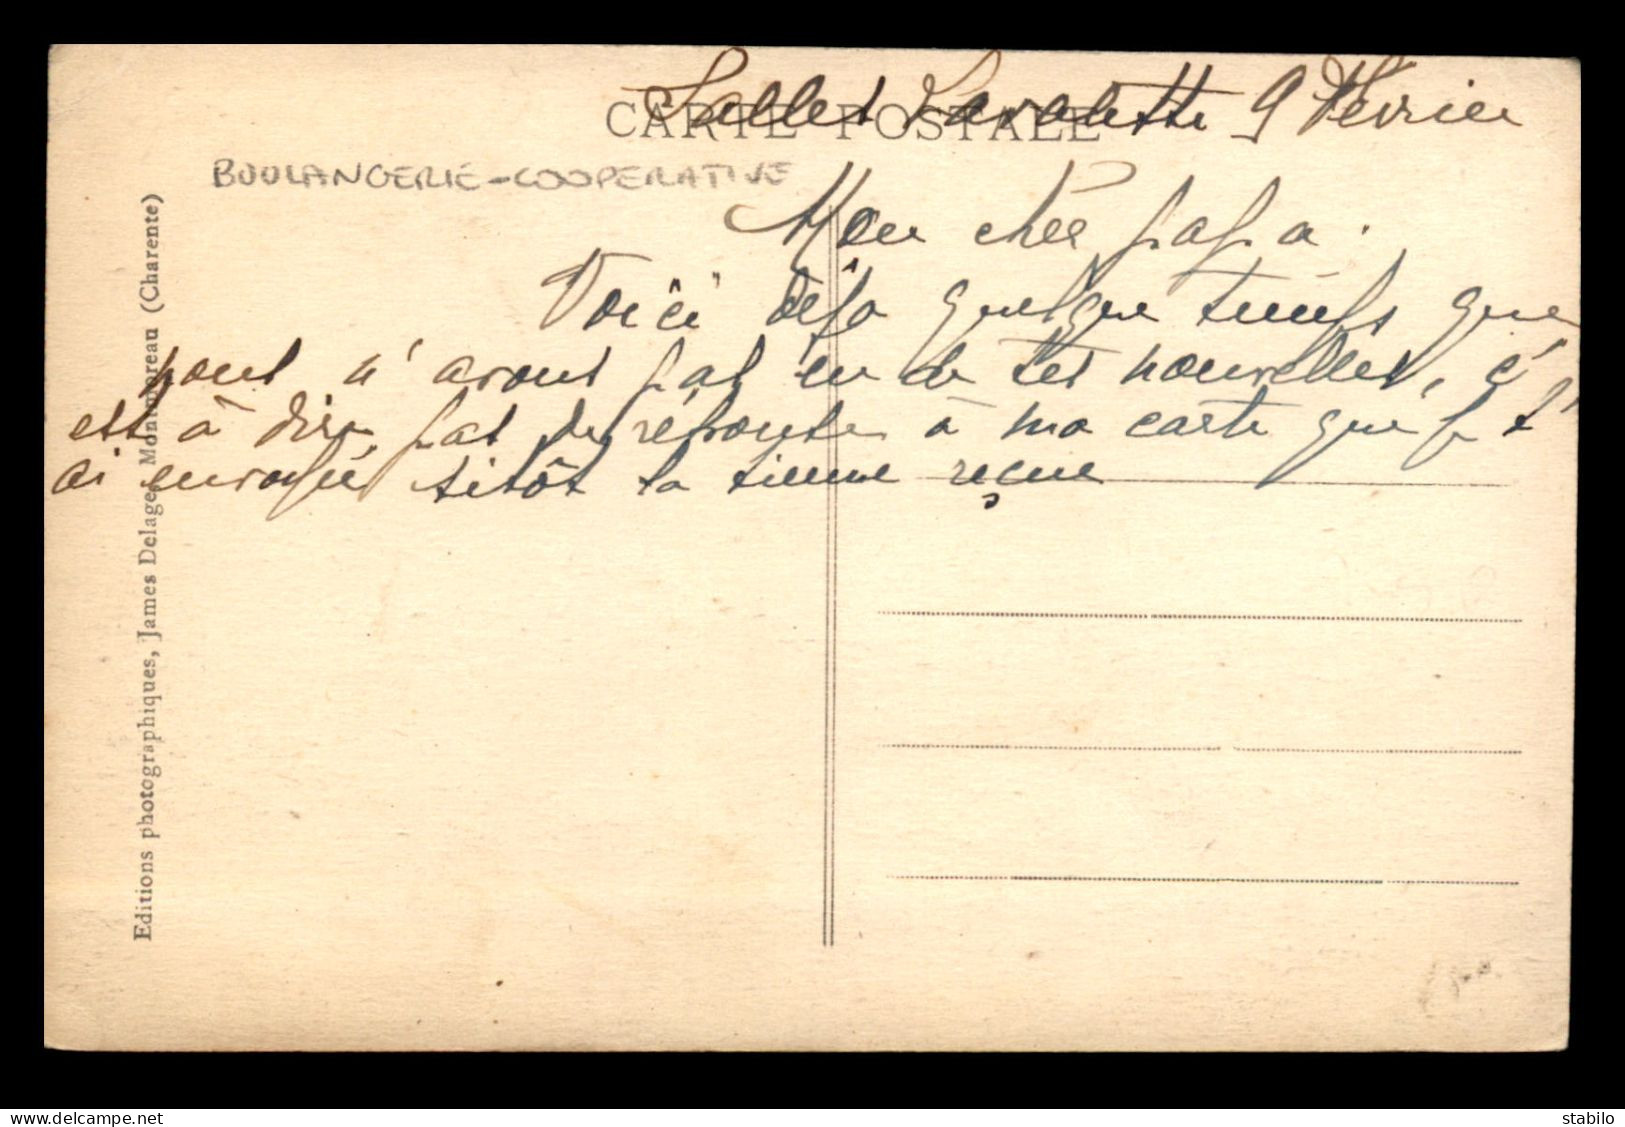 CARTE POSTALE
Salles Lavalette 9 Février
BOULANGERIE-COOPERATIVE
Mon cher papa.
Voici déja quelque temps que
nous n'avons pas eu de tes nouvelles, c'
est à dire pas de réponse à ma carte que je t'
ai envoyée sitôt la tienne reçue
Editions photographiques, James Delage, Montmoreau (Charente)
delcampe.net
stabilo